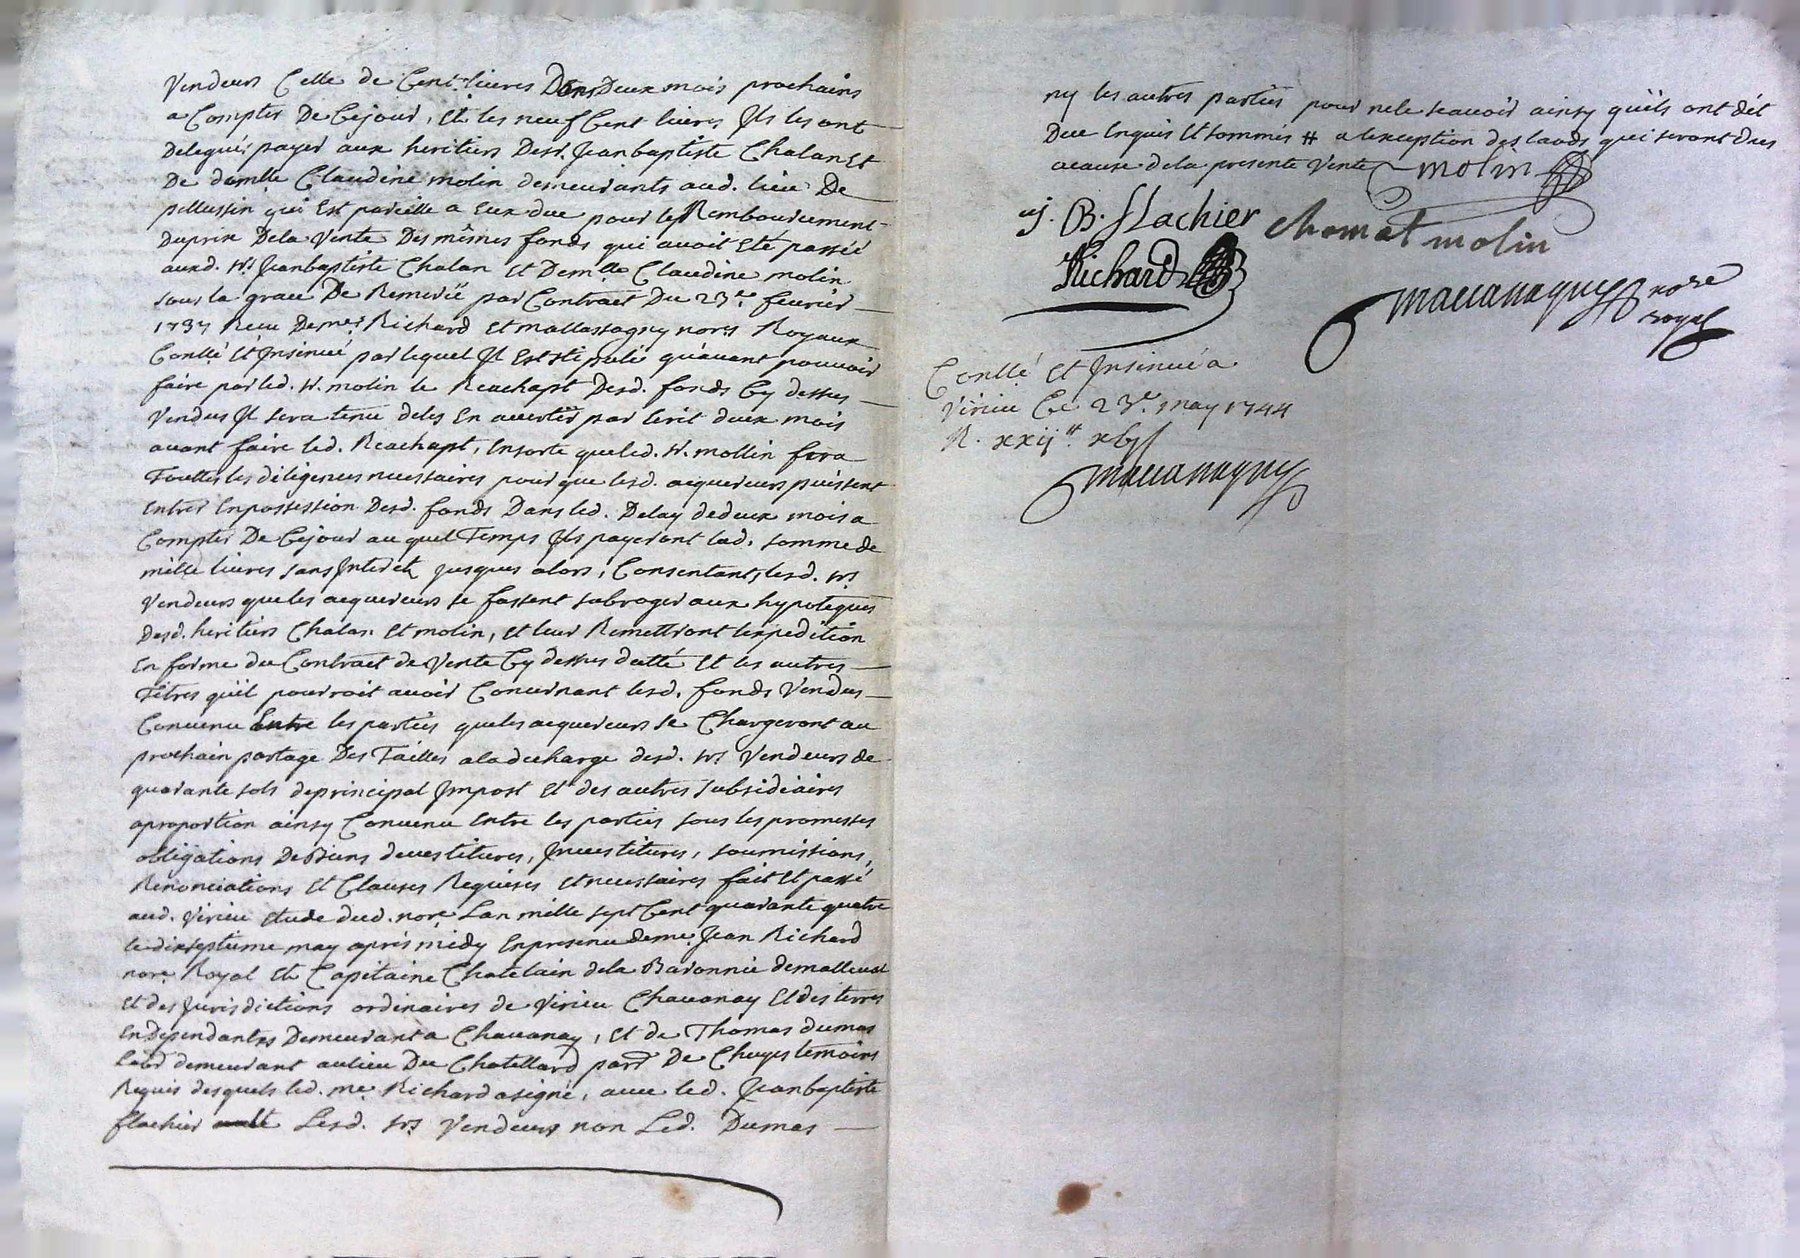 Vendeurs Celle de Cent livres Dans Deux mois prochains
a Compter De Cejour, Et les neuf Cent livres Ils les ont
Delegués payer aux heritiers Desd. Jeanbaptiste Chalan Et
De demlle Claudine molin demeurants aud. lieu De
pellussin qui Est pareille a Eux due pour le Rembourcement
Duprix Dela Vente Des mêmes fonds qui avoit Eté passée
auxd. Srs Jeanbaptiste Chalan Et Demlle Claudine molin
sous la grace De Remeré par Contract Du 23e fevrier
1737 Receu Demes Richard Et mallassagny nores Royaux
Conllé Et Insinué par lequel Il Est stipulé qu'avant pouvoir
faire par led. Sr. molin le Reachapt Desd. fonds Cy dessus
Vendus Il sera tenu deles En avertir par Ecrit deux mois
avant faire led. Reachapt, Ensorte queled. Sr. mollin fera
Touttes les diligences necessaires pour que lesd. acquereurs puissent
Entrer Enpossession Desd. fonds Dans led. Delay dedeux mois a
Compter De Cejour au quel Temps Ils payeront lad. somme de
mille livres sans Interets jusques alors, Consentants lesd. Srs
Vendeurs queles acquereurs se fassent subroger aux hypoteques
Desd. heritiers Chalan Et molin, et leur Remettront lexpedition
En forme du Contract de Vente Cy dessus datté Et les autres
Titres qu'il pourroit avoir Concernant lesd. fonds Vendus
Convenu Entre les parties queles acquereurs se Chargeront au
prochain partage Des Tailles aladecharge desd. Srs Vendeurs de
quarante sols deprincipal Impost Et des autres subsidiaires
aproportion ainsy Convenu Entre les parties sous les promesses
obligations De Biens devestitures, Investitures, soumissions,
Renonciations Et Clauses Requises et necessaires fait Et passé
aud. Virieu Etude dud. nore Lan mille sept Cent quarante quatre
le dixseptieme may aprés midy Enpresence deme Jean Richard
nore Royal Et Capitaine Chatelain dela Baronnie demalleval
Et des Jurisdictions ordinaires de Virieu Chavanay Et des terres
En Dependantes Demeurant a Chavanay, Et de Thomas dumas
Labr demeurant aulieu Du Chatellard parr De Chuyes temoins
Requis desquels led. me Richard asigné, avec led. Jeanbaptiste
flachier Lesd. Srs Vendeurs non Led. Dumas
ny les autres parties pour nele scavoir ainsy qu'ils ont dit
Due Enquis Et sommés # a lexception des lauds qui seront dues
acause dela presente Vente molin
J. B. fLachier Chomat molin
Richard
mallassagny nore
royal
Conllé Et Insinué a
Virieu Ce 23e. may 1744
R. xxij tt
mallassagny